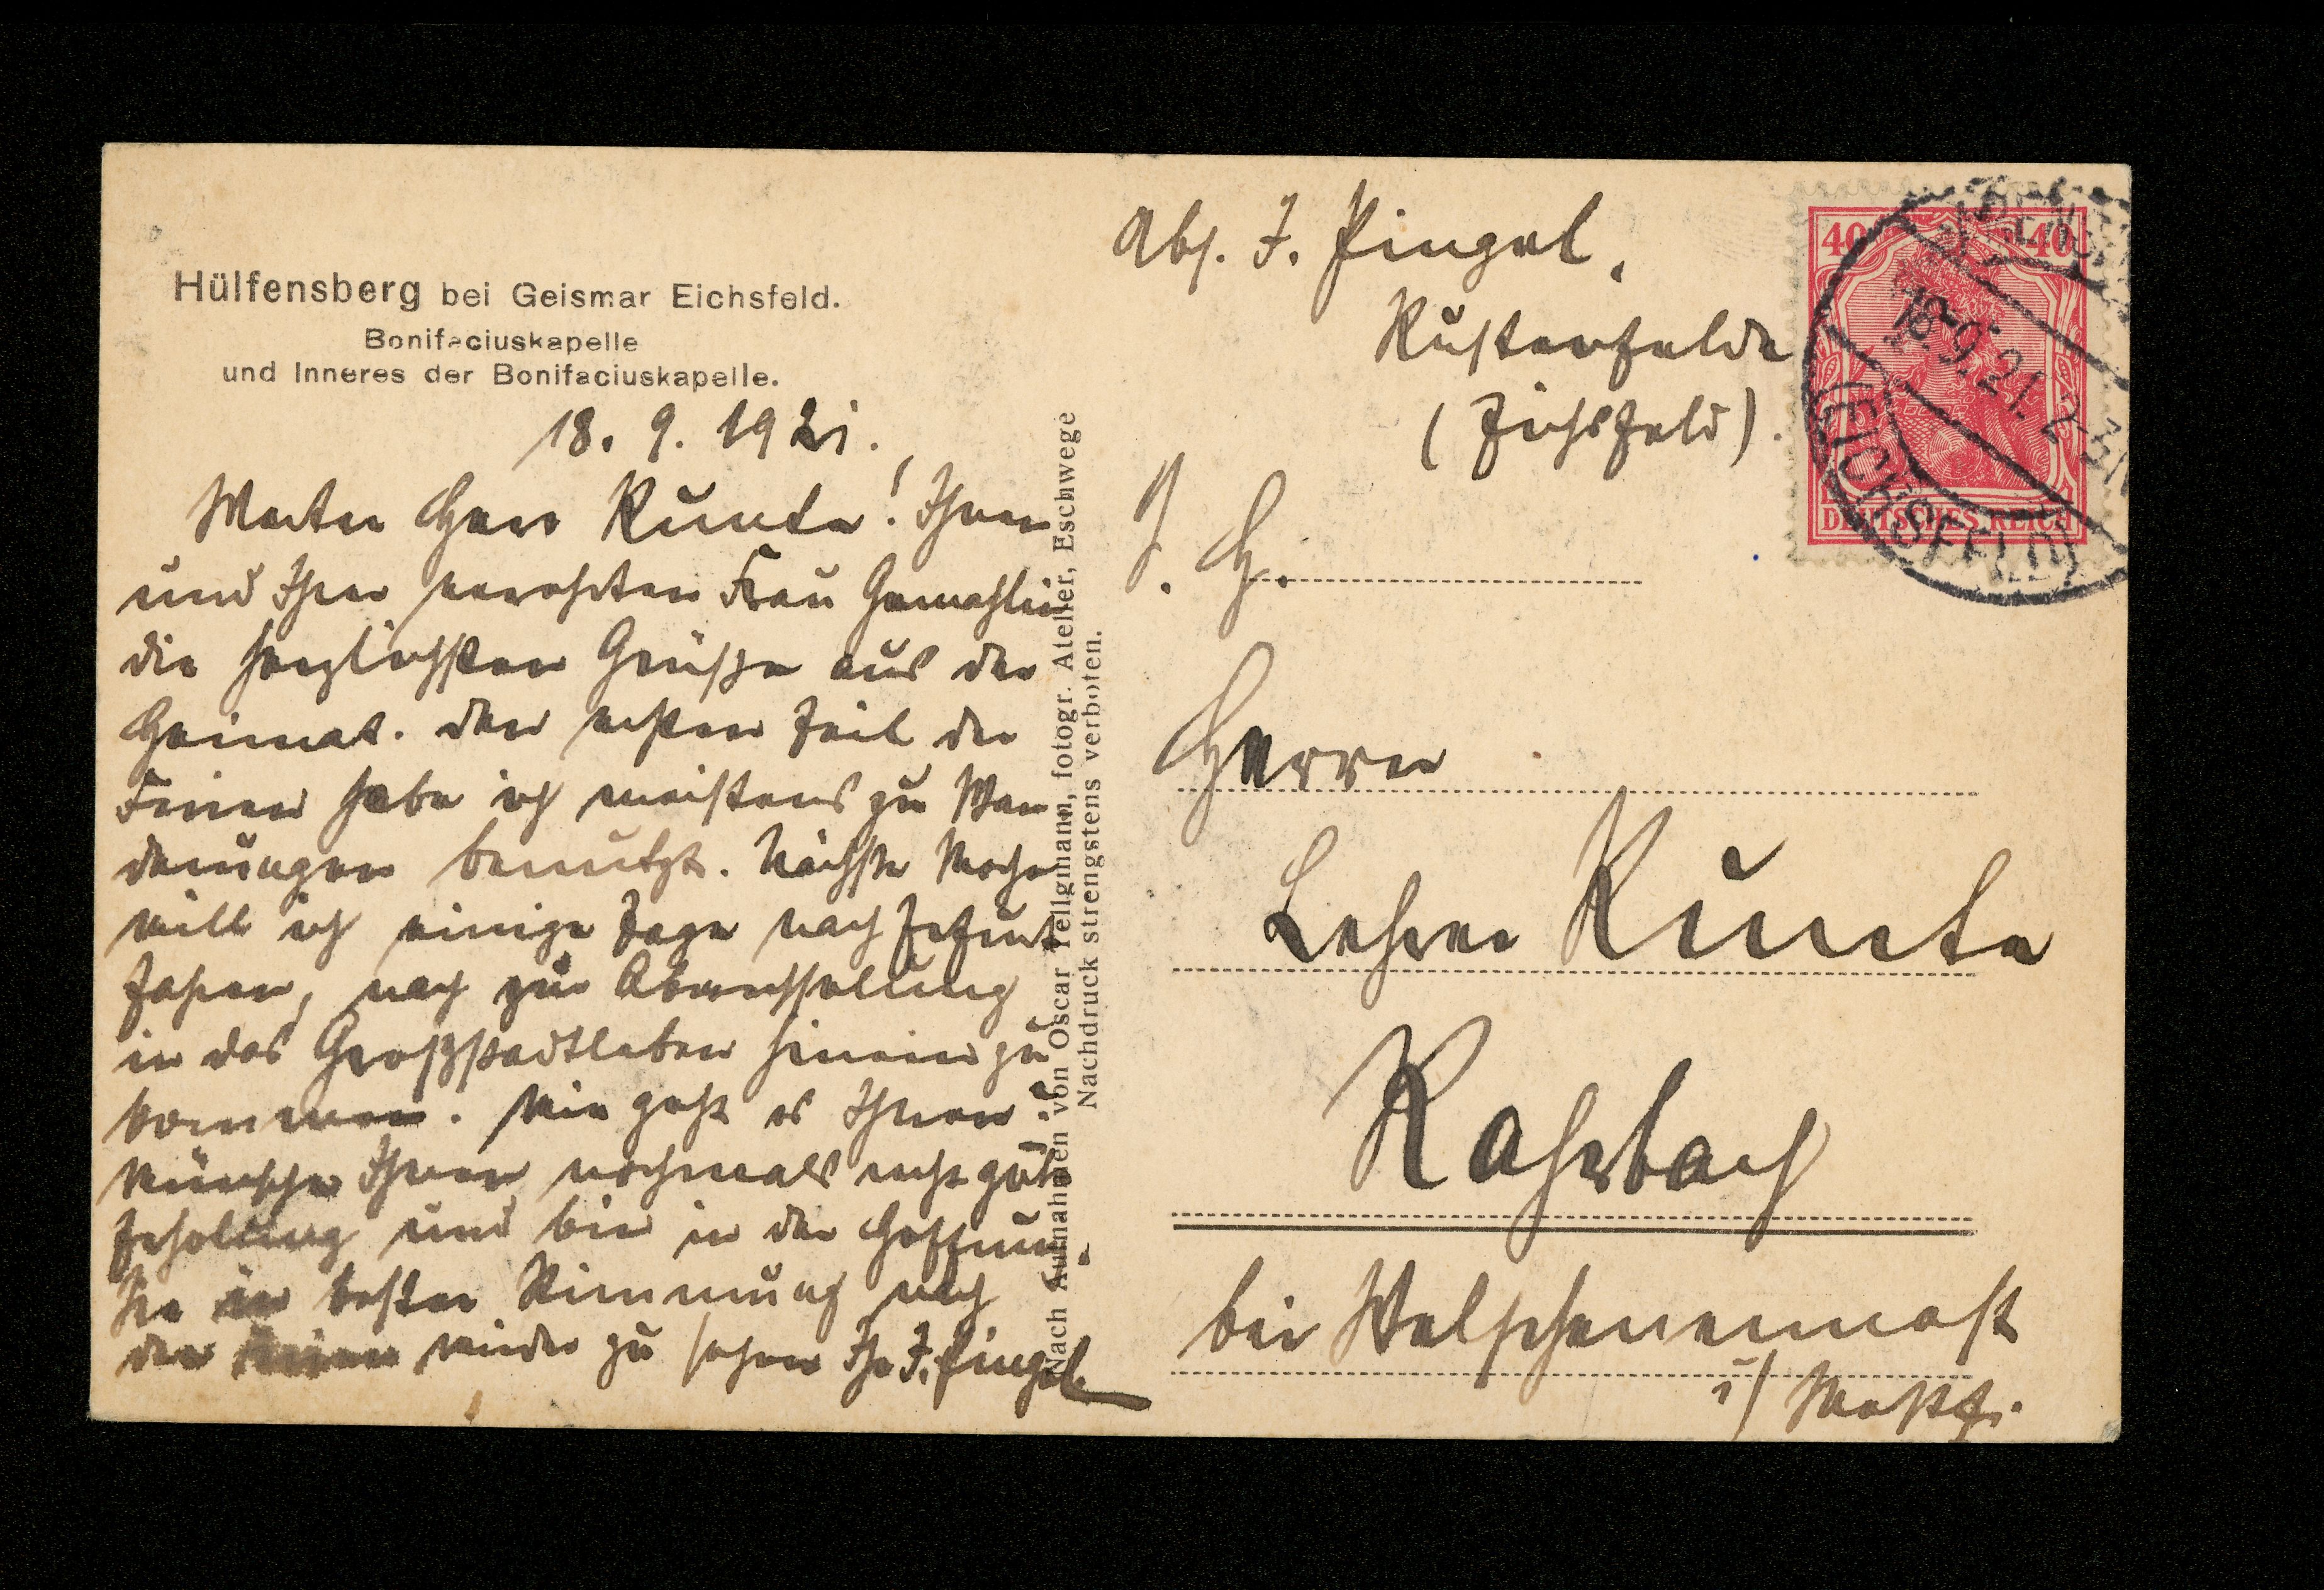 Hülfensberg bei Geismar Eichsfeld.
Bonifaciuskapelle
und Inneres der Bonifaciuskapelle.
18. 9. 1921.
Werter Herr Kunte! Ihnen
und Ihrer verehrten Frau Gemahlin
die herzlichsten Grüße aus der
Heimat. Den ersten Teil der
Ferien habe ich meistens zu Wan
derungen benutzt. Nächste Woche
will ich einige Tage nach Erfurt
fahren, nach zur Abwechselung
in das Großstadtleben hinein zu
kommen. Wie geht es Ihnen?
Wünsche Ihnen nochmals recht gute
Erholung und bin in der Hoffnung,
Sie in bester Stimmung nach
den Ferien wieder zu sehen Ihr F. Pingel
Nach Aufnahmen von Oscar Tellgmann, fotogr. Atelier, Eschwege
Nachdruck strengstens verboten.
Abs. F. Pingel,
Rüstenfelde
(Eichsfeld).
40 40
DEUTSCHES REICH
18.9.21. 2-3N
(EICHSFELD)
S. H.
Herrn
Lehrer Kunte
Rahrbach
bei Welschenennest
i/ Westf.